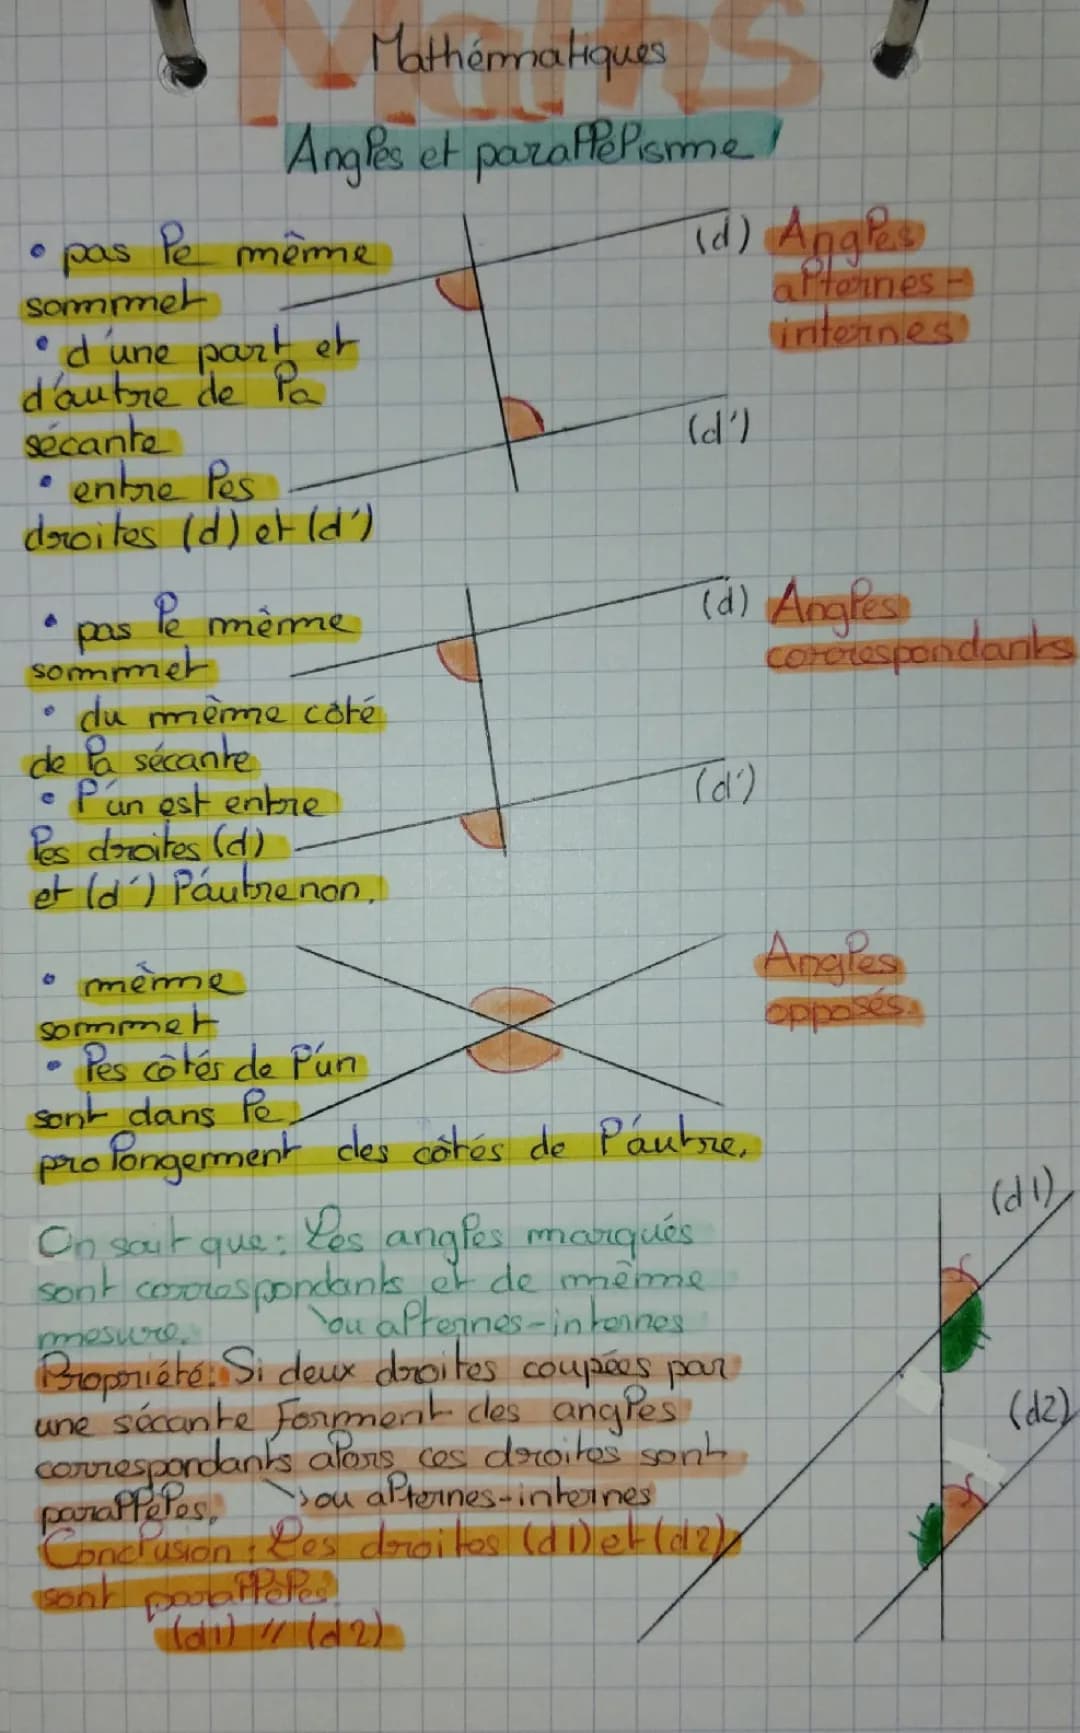 Maths
Mathématiques
Angles et parallélisme
• pas le même
sommet
• d'une part et
d'autre de la
sécante
• entre les
droites (d) et (d')
(d)
(d')
Angles
alternes-
internes
• pas le même
sommet
• du même côté
de la sécante
• l'un est entre
les droites (d)
et (d') l'autre non.
(d)
(d')
Angles
correspondants
• même
sommet
• les côtés de l'un
sont dans le
prolongement des côtés de l'autre.
Angles
opposés.
On sait que : Les angles marqués
sont correspondants et de même
mesure. ou alternes-internes
Propriété : Si deux droites coupées par
une sécante forment des angles
correspondants alors ces droites sont
parallèles. ou alternes-internes
Conclusion : Les droites (d1) et (d2)
sont parallèles.
(d1) // (d2)
(d1)
(d2)